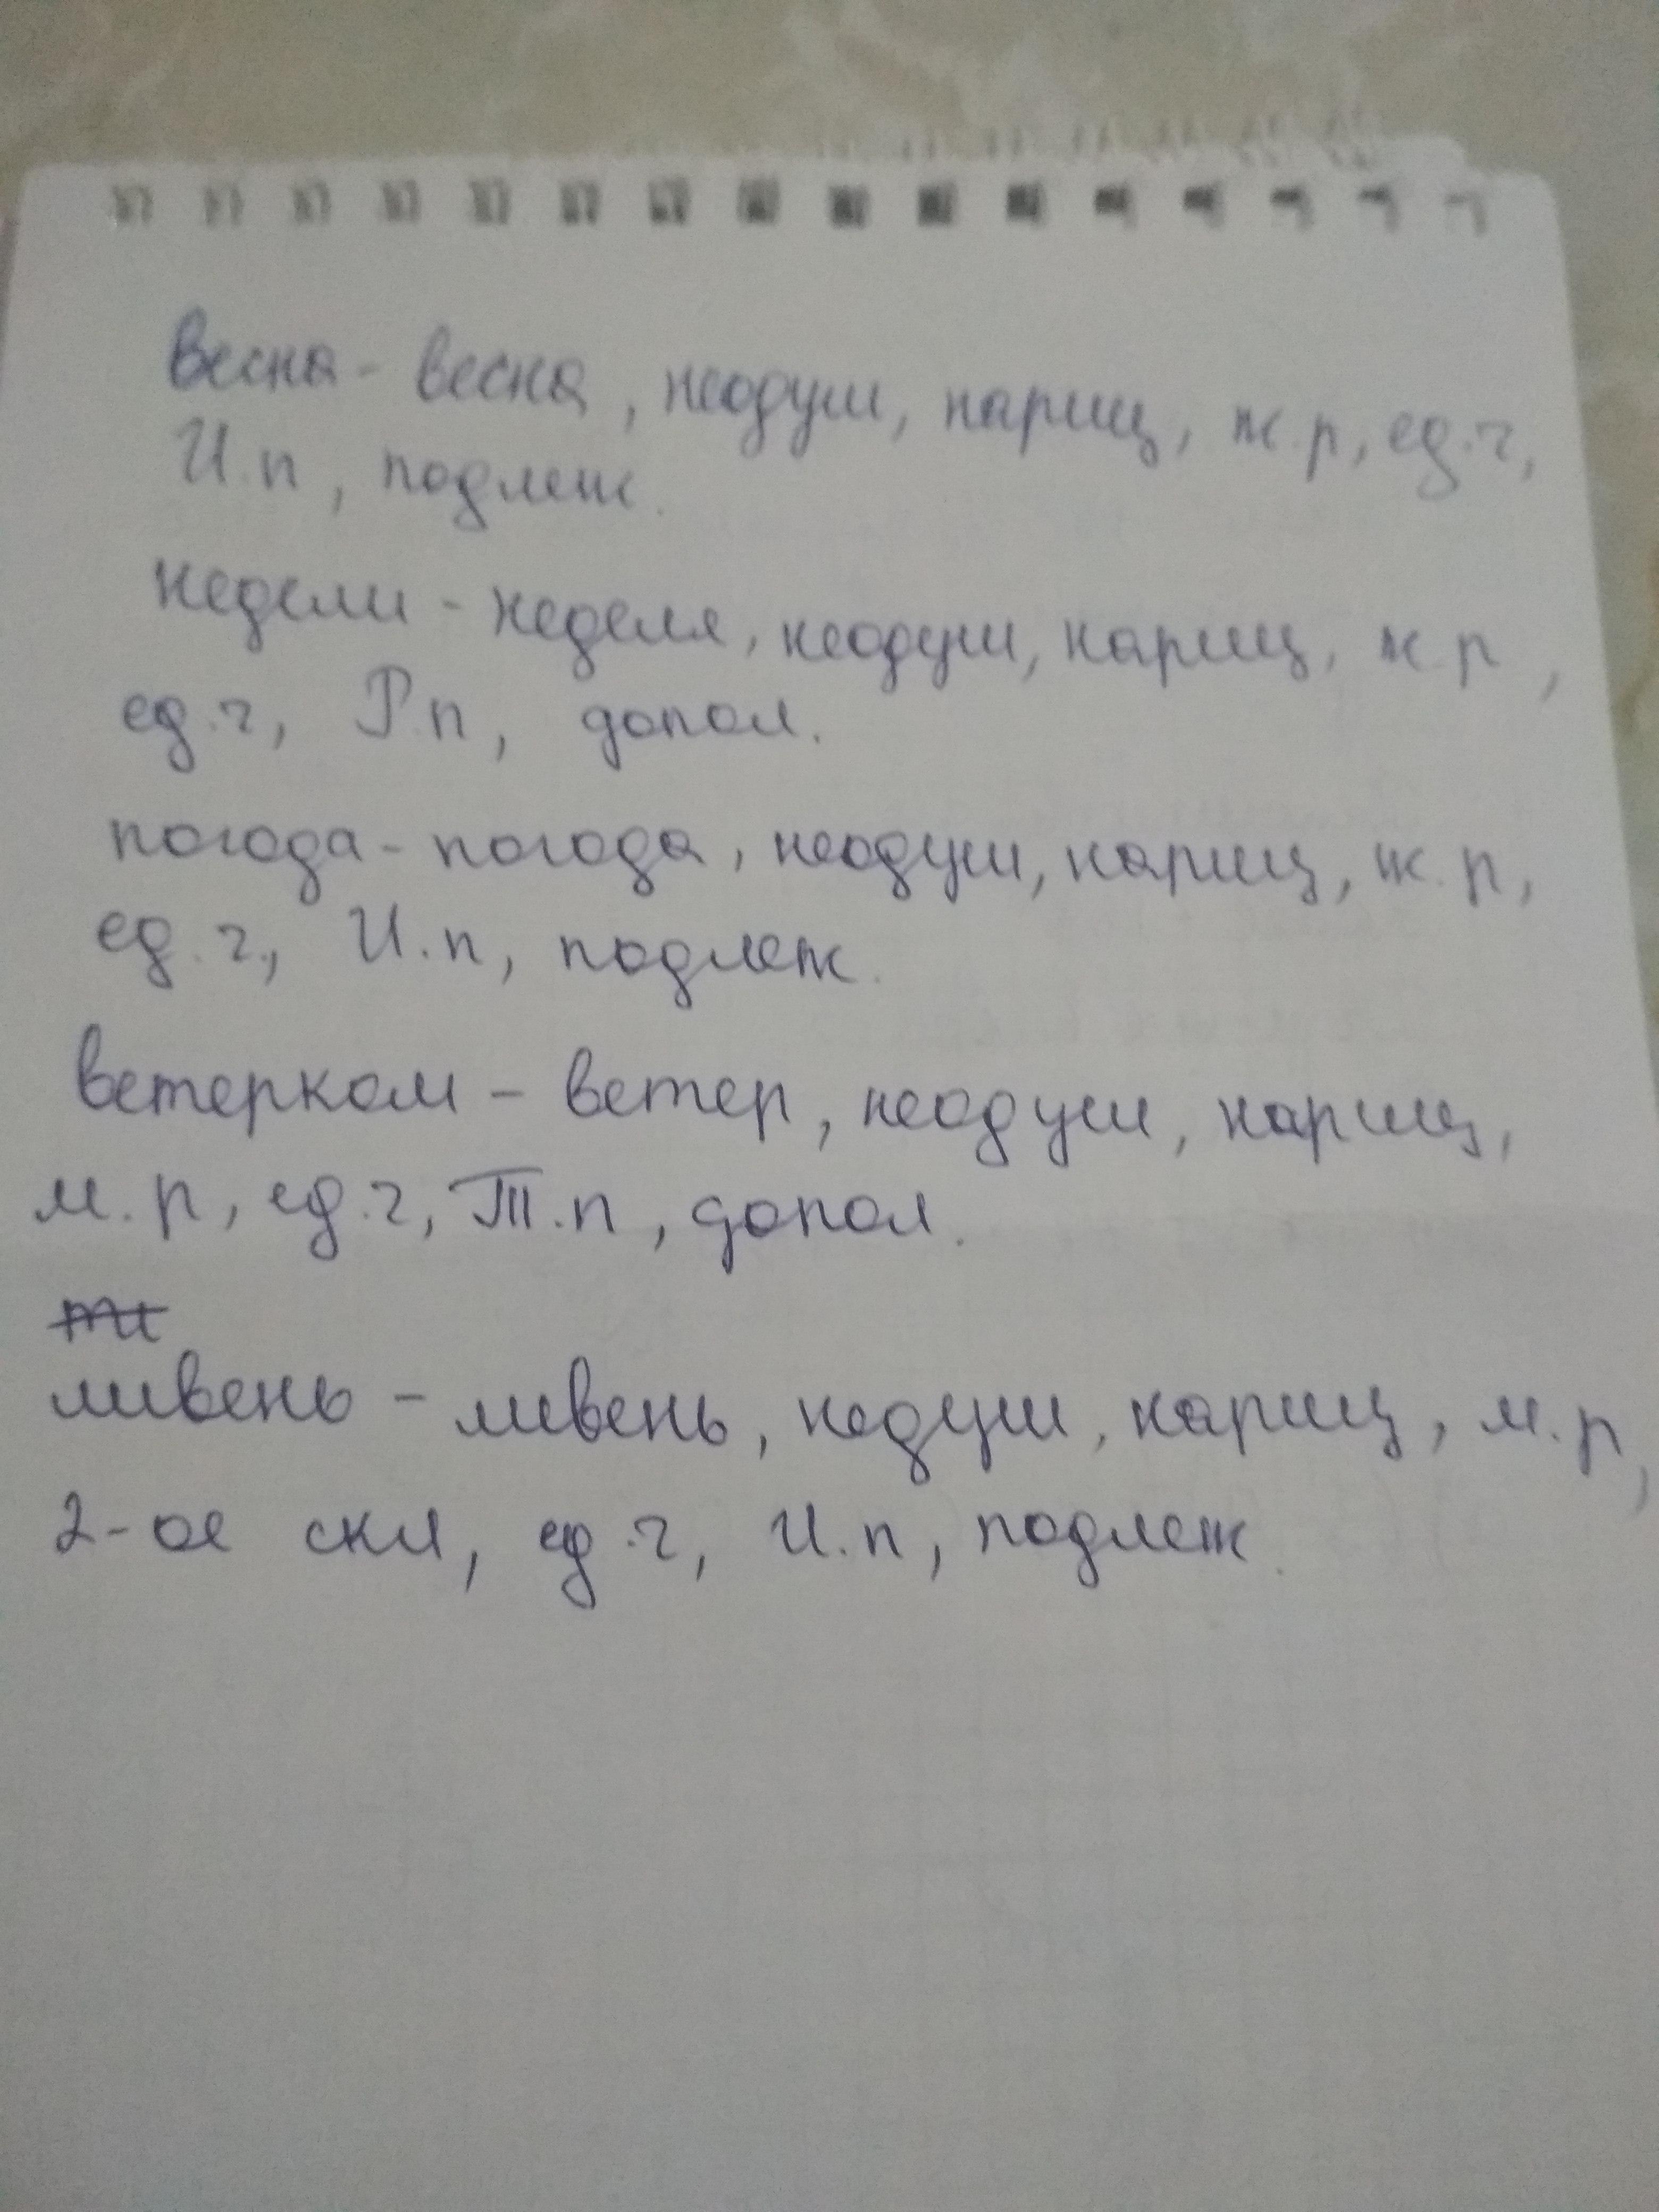 Весна - весна, неодуш, нариц, ж.р, ед.ч,
И.п, подлеж.
недели - неделя, неодуш, нариц, ж.р,
ед.ч, Р.п, допол.
погода - погода, неодуш, нариц, ж.р,
ед.ч, И.п, подлеж.
ветерком - ветер, неодуш, нариц,
м.р, ед.ч, Т.п, допол.
ливень - ливень, недуш, нариц, м.р,
2-ое скл, ед.ч, И.п, подлеж.